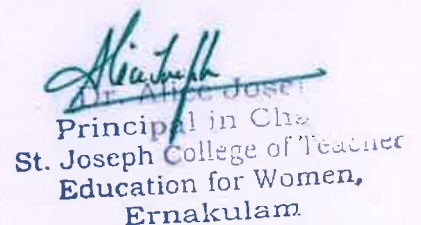 Alice Joseph
Dr. Alice Jose
Principal in Cha
St. Joseph College of Teacher
Education for Women,
Ernakulam